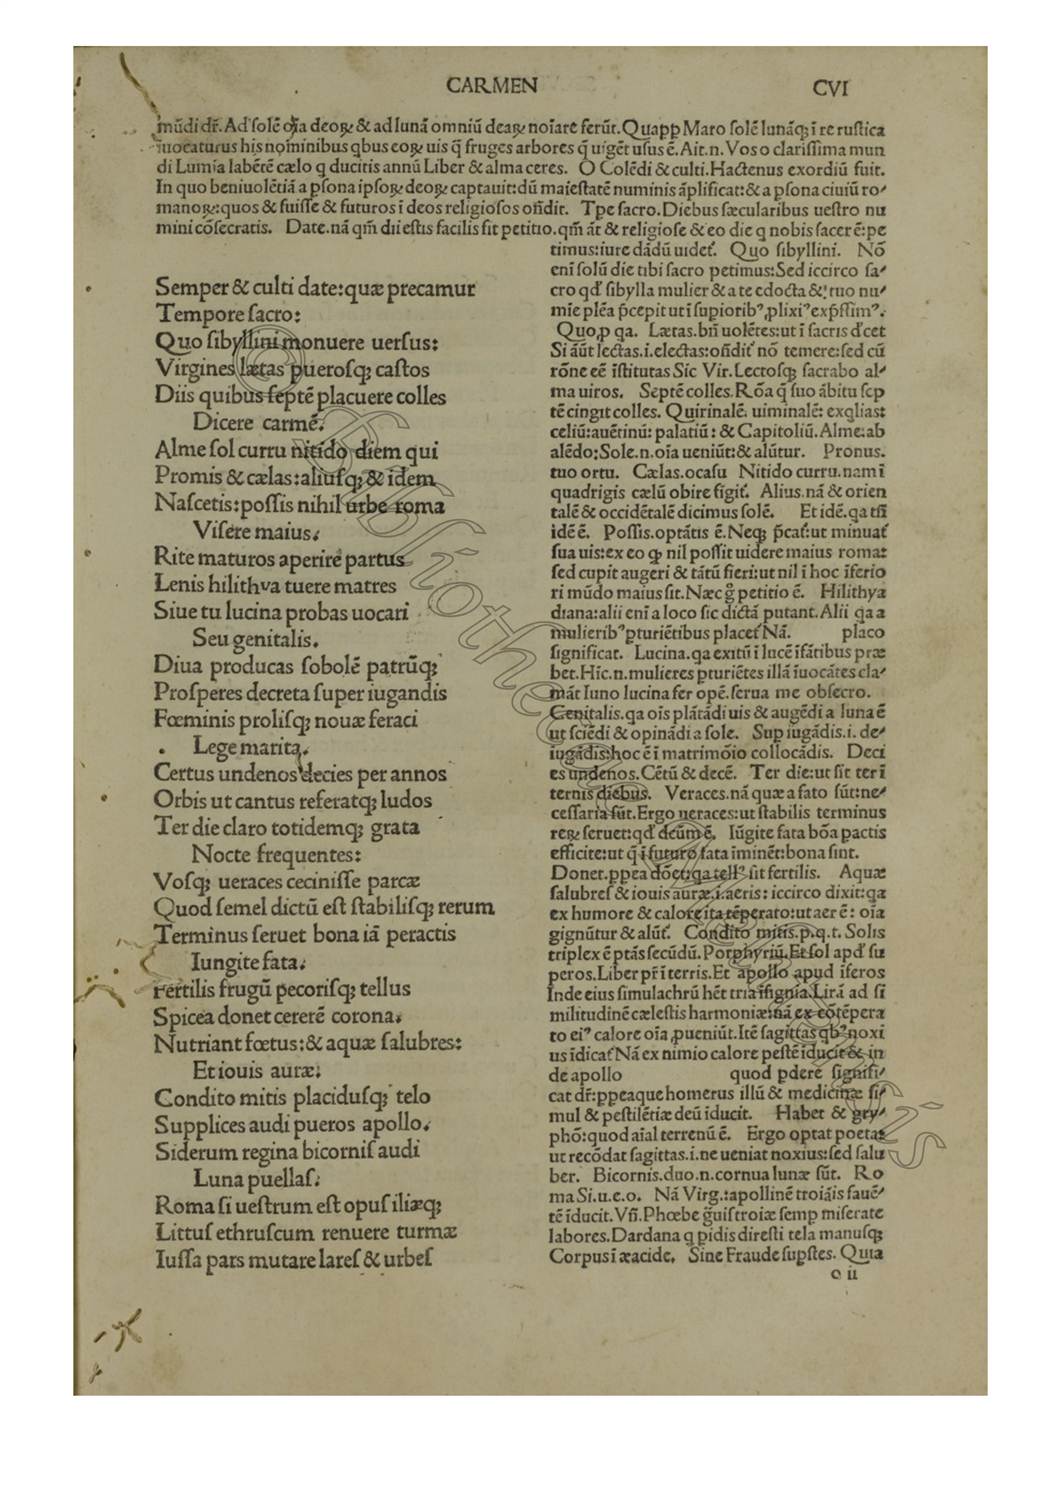 CARMEN CVI
mūdi dr̄. Ad solē oīa deoꝝ & ad lunā omniū deaꝝ noīare ferūt. Quapp Maro solē lunāqꝫ ī re rustica
īuocaturus his nominibus qbus eoꝝ uis q̄ fruges arbores q̄ uigēt usus ē. Ait.n. Vos o clarissima mun
di Lumīa labētē cælo q ducitis annū Liber & alma ceres. O Colēdi & culti. Hactenus exordiū fuit.
In quo beniuolētiā a psona ipsoꝝ deoꝝ captauit: dū maiestatē numinis āplificat: & a psona ciuiū ro⸗
manoꝝ: quos & fuisse & futuros ī deos religiosos oñdit. Tpe sacro. Diebus sæcularibus uestro nu
mini cōsecratis. Date. nā qm̄ dii estis facilis sit petitio. qm̄ āt & religiose & eo die q nobis sacer ē: pe
Semper & culti date: quæ precamur
Tempore sacro:
Quo sibyllini monuere uersus:
Virgines lætas puerosqꝫ castos
Diis quibus septē placuere colles
Dicere carmē.
Alme sol curru nitido diem qui
Promis & cælas: aliusqꝫ & idem
Nascetis: possis nihil urbe roma
Visere maius.
Rite maturos aperire partus
Lenis hilithya tuere matres
Siue tu lucina probas uocari
Seu genitalis.
Diua producas sobolē patrūqꝫ
Prosperes decreta super iugandis
Fœminis prolisqꝫ nouæ feraci
Lege marita.
Certus undenos decies per annos
Orbis ut cantus referatqꝫ ludos
Ter die claro totidemqꝫ grata
Nocte frequentes:
Vosqꝫ ueraces cecinisse parcæ
Quod semel dictū est stabilisqꝫ rerum
Terminus seruet bona iā peractis
Iungite fata.
Fertilis frugū pecorisqꝫ tellus
Spicea donet cererē corona.
Nutriant fœtus: & aquæ salubres:
Et iouis auræ.
Condito mitis placidusqꝫ telo
Supplices audi pueros apollo.
Siderum regina bicornis audi
Luna puellas.
Roma si uestrum est opus iliæqꝫ
Littus ethruscum renuere turmæ
Iussa pars mutare lares & urbes
timus: iure dādū uidet̃. Quo sibyllini. Nō
enī solū die tibi sacro petimus: Sed iccirco sa⸗
cro qđ sibylla mulier & a te edocta & tuo nu⸗
mīe plēa p̄cepit ut ī supiorib⁹ ,plixi⁹ exp̄ssim⁹.
Quo,p qa. Lætas. bn̄ uolētes: ut ī sacris đcet
Si āūt lectas.i.electas: oñdit̃ nō temere: sed cū
rōne eē īstitutas Sic Vir. Lectosqꝫ sacrabo al⸗
ma uiros. Septē colles. Rōa q̄ suo ābitu sep
tē cingit colles. Quirinalē. uiminalē: exqlias:
celiū: auētinū: palatiū: & Capitoliū. Alme: ab
alēdo; Sole.n.oīa ueniūt: & alūtur. Pronus.
tuo ortu. Cælas. ocasu Nitido curru. nam ī
quadrigis cælū obire figit̃. Alius. nā & orien
talē & occidētalē dicimus solē. Et idē. qa tñ
idē ē. Possis. optātis ē. Neqꝫ p̄cat̃: ut minuat̃
sua uis: ex eo qꝫ nil possit uidere maius roma:
sed cupit augeri & tātū fieri: ut nil ī hoc īferio
ri mūdo maius sit. Næc g̊ petitio ē. Hilithya
diana: alii enī a loco sic dictā putant. Alii qa a
mulierib⁹ pturiētibus placet̃ Nā. placo
significat. Lucina. qa exitū ī lucē īfātibus præ
bet. Hīc.n. mulieres pturiētes illā īuocātes cla⸗
māt Iuno lucina fer opē. serua me obsecro.
Genitalis. qa oīs plātādi uis & augēdi a luna ē
ut sciēdi & opinādi a sole. Sup iugādis.i. de⸗
iugādis: hoc ē ī matrimōio collocādis. Deci
es undenos. Cētū & decē. Ter die: ut sit ter ī
ternis diebus. Veraces. nā quæ a fato sūt: ne⸗
cessaria sūt. Ergo ueraces: ut stabilis terminus
reꝝ seruet: qđ deūm ē. Iūgite fata bōa pactis
efficite: ut q̄ ī futuro fata īminēt: bona sint.
Donet. ppea dōet: qa tell⁹ sit fertilis. Aquæ
salubres & iouis auræ.i.aeris: iccirco dixit: qa
ex humore & calore ita tēperato: ut aer ē: oīa
gignūtur & alūt̃. Condito mitis.p.q.t. Solis
triplex ē ptās secūdū. Porphyriū. Et sol apđ su
peros. Liber pr̄ ī terris. Et apollo apud īferos
Inde eius simulachrū hēt tria īsignia. Lirā ad si
militudinē cælestis harmoniæ: nā ex cōtēpera
to ei⁹ calore oīa ,pueniūt. Itē sagittas qb⁹ noxi
us īdicat̃ Nā ex nimio calore pestē īducit & in
de apollo quod pdere signifi⸗
cat dr̄: ppeaque homerus illū & medicinæ si⸗
mul & pestilētiæ deū īducit. Habet & gry⸗
phō: quod aīal terrenū ē. Ergo optat poeta:
ut recōdat sagittas.i.ne ueniat noxius: sed salu
ber. Bicornis. duo.n.cornua lunæ sūt. Ro
ma Si.u.e.o. Nā Virg.: apollinē troiāis fauē⸗
tē īducit. Vñ. Phœbe g̃uis troiæ semp miserate
labores. Dardana q pidis diresti tela manusqꝫ
Corpus ī æacide. Sine Fraude supstes. Quia
o ii
© Bibliotheca